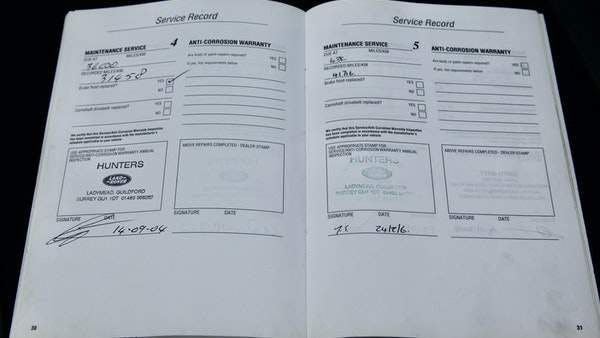 Service Record
MAINTENANCE SERVICE 4
DUE AT MILES/KM
36000
RECORDED MILES/KM
31458
Brake fluid replaced? YES
NO
Camshaft drivebelt replaced?
We certify that the Service/Anti Corrosion Warranty Inspection
has been completed in accordance with the manufacturer's
schedules applicable to your vehicle
USE APPROPRIATE STAMP FOR
SERVICE/ANTI-CORROSION WARRANTY ANNUAL
INSPECTION
HUNTERS
LAND ROVER
LADYMEAD, GUILDFORD
SURREY GU1 1DT
SIGNATURE DATE
14-09-04
30
ANTI-CORROSION WARRANTY
Are body or paint repairs required?
YES
If yes, list requirements below
NO
ABOVE REPAIRS COMPLETED - DEALER STAMP
SIGNATURE DATE
Service Record
MAINTENANCE SERVICE 5
DUE AT MILES/KM
RECORDED MILES/KM
Brake fluid replaced? YES
NO
Camshaft drivebelt replaced?
We certify that the Service/Anti Corrosion Warranty Inspection
has been completed in accordance with the manufacturer's
schedules applicable to your vehicle
USE APPROPRIATE STAMP FOR
SERVICE/ANTI-CORROSION WARRANTY ANNUAL
INSPECTION
HUNTERS
LADYMEAD, GUILDFORD
SURREY GU1 1DT
SIGNATURE DATE
ANTI-CORROSION WARRANTY
Are body or paint repairs required?
YES
If yes, list requirements below
NO
ABOVE REPAIRS COMPLETED - DEALER STAMP
SIGNATURE DATE
31